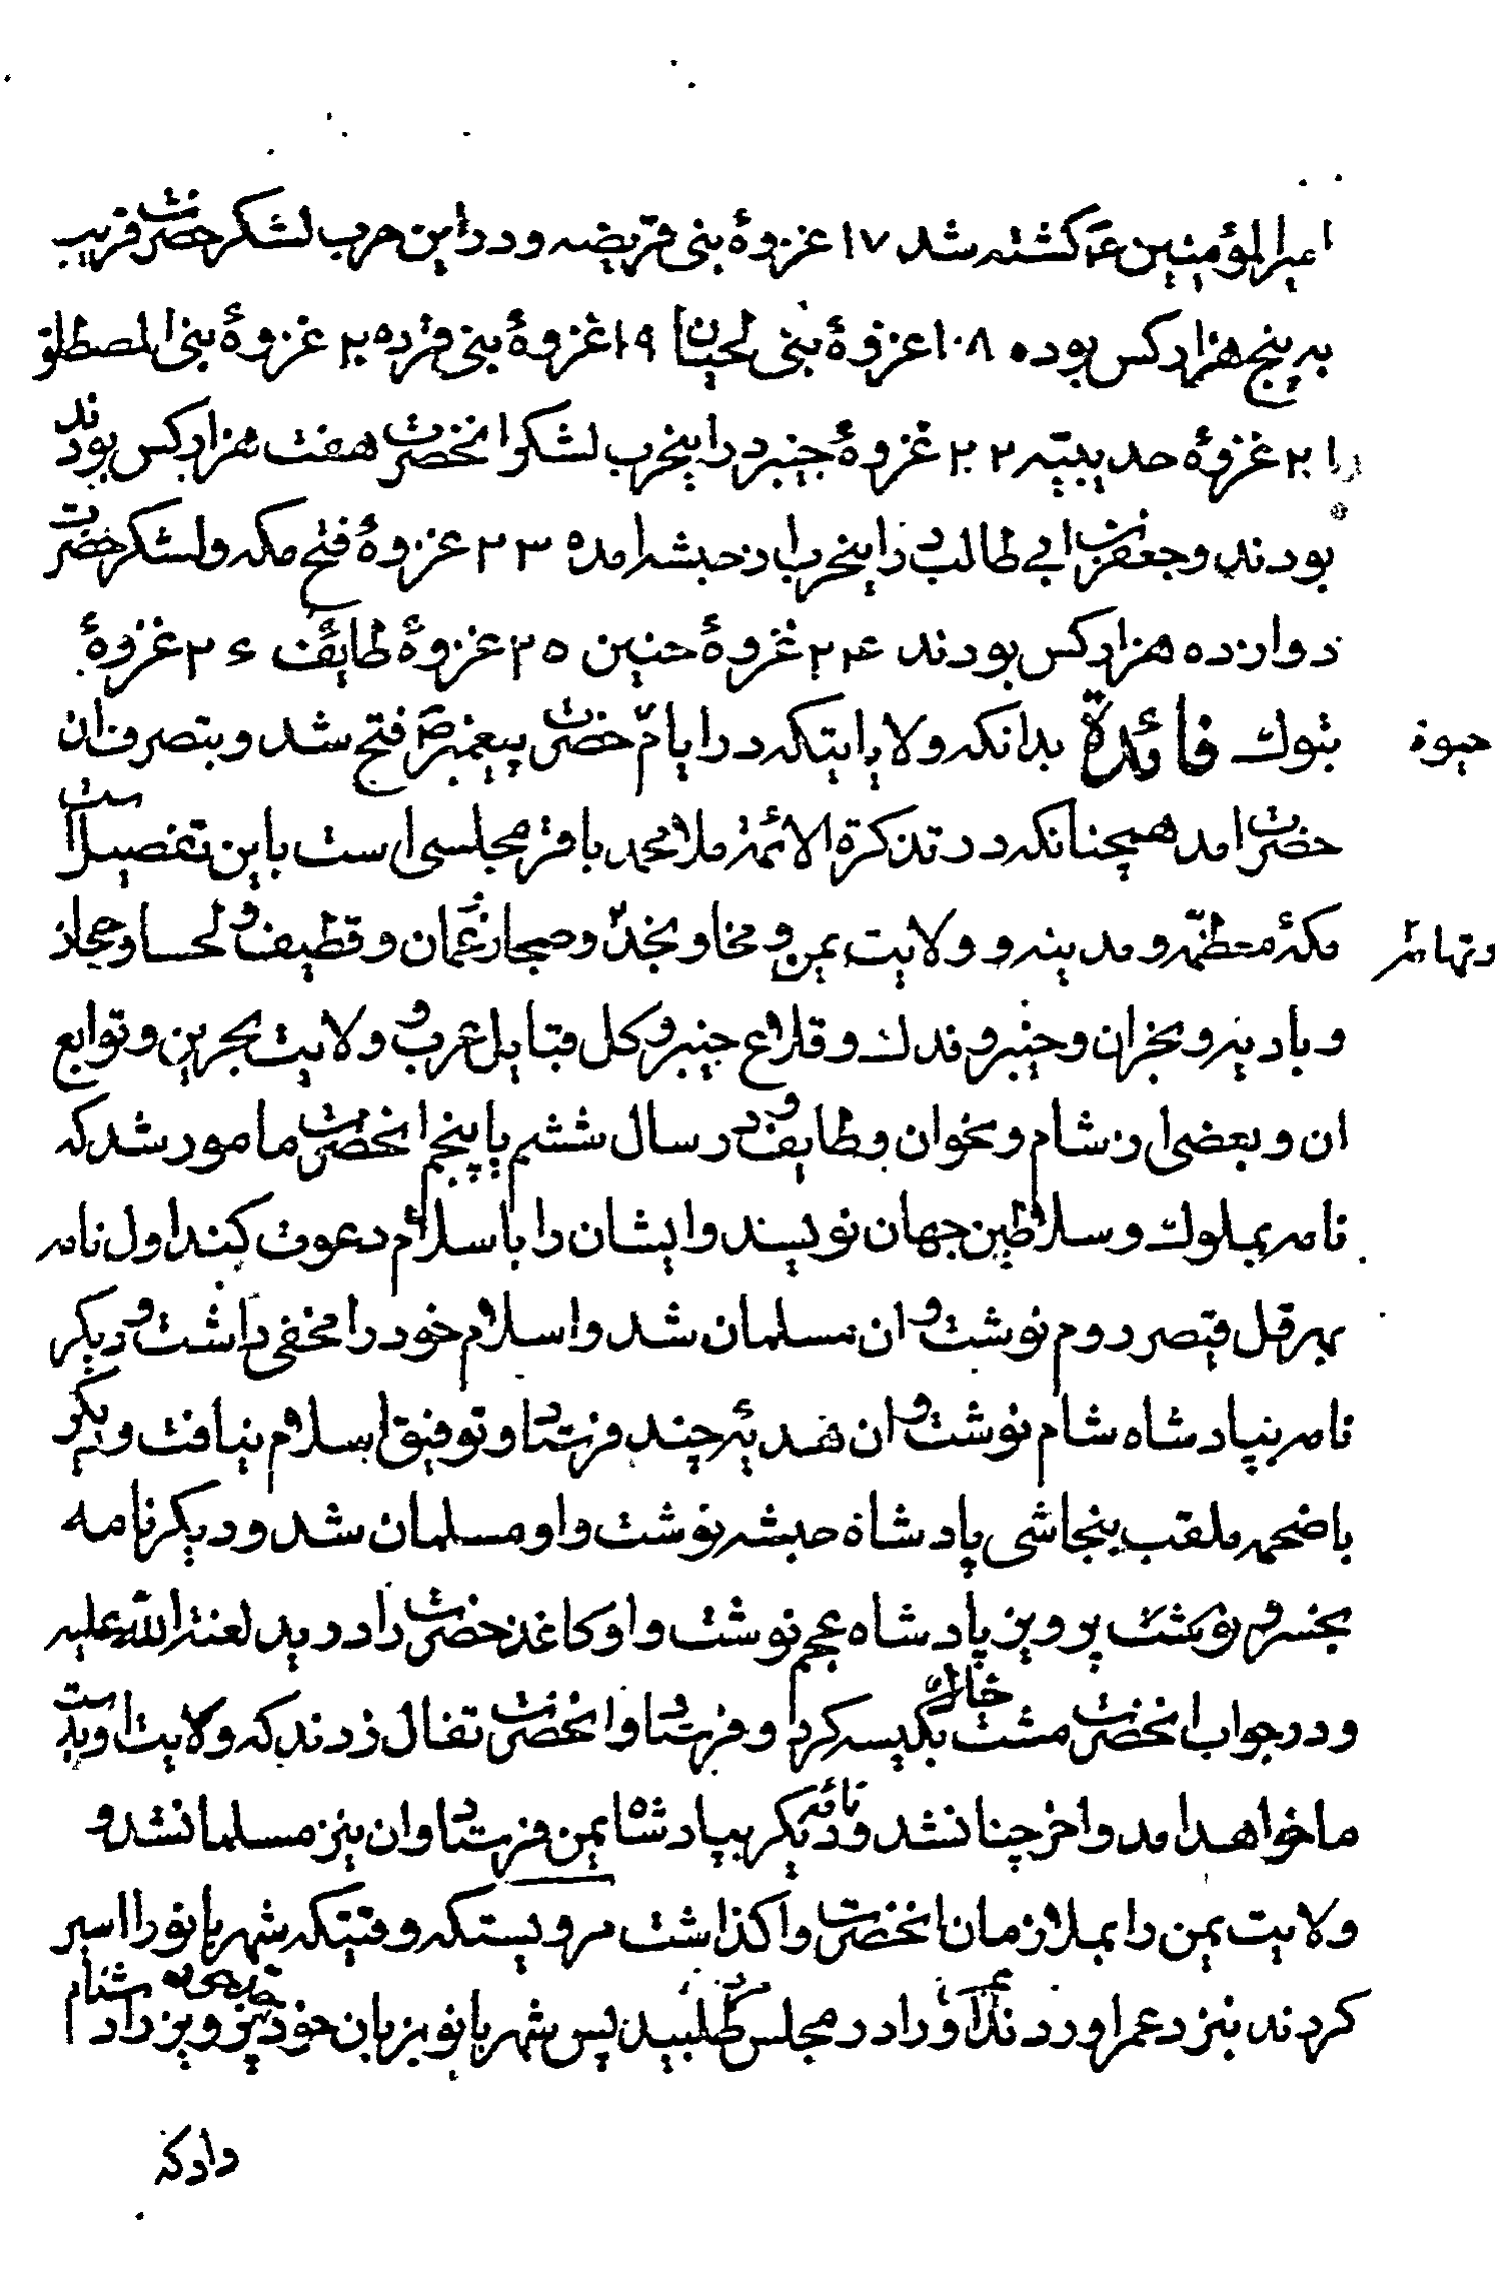 امیرالمؤمنین ع کشته شد ۱۷ غزوهٔ بنی قریضه و در این حرب لشکر حضرت قریب
به پنج هزار کس بوده ۱۸ غزوهٔ بنی لحیان ۱۹ غزوهٔ بنی قرده ۲۰ غزوهٔ بنی المصطلق
۲۱ غزوهٔ حدیبیّه ۲۲ غزوهٔ خیبر در اینحرب لشکر انحضرت هفت هزار کس بودند
بودند و جعفر بن ابی طالب در اینحرب از حبشه امده ۲۳ غزوهٔ فتح مکه و لشکر حضرت
دوازده هزار کس بودند ۲۴ غزوهٔ حنین ۲۵ غزوهٔ طایف ۲۶ غزوهٔ
تبوک فائدة بدانکه ولایاتیکه در ایام حضرت پیغمبر ص فتح شد و بتصرف ان
حیوة
حضرت امد همچنانکه در تذکرة الائمة ملا محمد باقر مجلسی است باین تفصیل است
مکهٔ معظمه و مدینه و ولایت یمن و مخا و نجد و صحار عمان و قطیف و لحسا و حجاز
و تهامه
و بادیه و نجران و خیبر و فدک و قلاع خیبر و کل قبایل عرب و ولایت بحرین و توابع
ان و بعضی از شام و نخوان و طایف و در سال ششم یا پنجم انحضرت مامور شد که
نامه بملوک و سلاطین جهان نویسند و ایشان را باسلام دعوت کنند اول نامه
بهرقل قیصر روم نوشت و ان مسلمان شد و اسلام خود را مخفی داشت و دیکر
نامه بپادشاه شام نوشت و ان هدیهٔ چند فرستاد و توفیق اسلام نیافت و دیکر
باضحمه ملقب بنجاشی پادشاه حبشه نوشت و او مسلمان شد و دیکر نامه
بخسرو نوشت پرویز پادشاه عجم نوشت و او کاغذ حضرت را درید لعنة الله علیه
و در جواب انحضرت مشت خاک بکیسه کرد و فرستاد و انحضرت تفال زدند که ولایت او بدست
ما خواهد امد و اخر چنانشد و نامه دیکر بپادشاه یمن فرستاد و ان نیز مسلمانشد و
ولایت یمن را بملازمان انحضرت واکذاشت مرویستکه وقتیکه شهربانو را اسیر
کردند بنزد عمر اوردند عمر او را در مجلس طلبید پس شهربانو بزبان خود پرویز را دشنام
دادکه